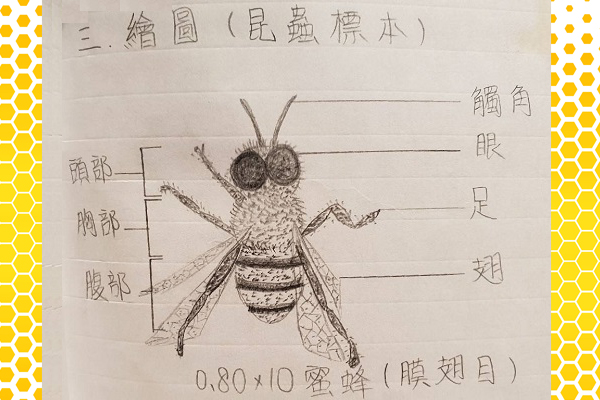 三.繪圖(昆蟲標本)
觸角
眼
頭部
足
胸部
翅
腹部
0.80×10 蜜蜂(膜翅目)